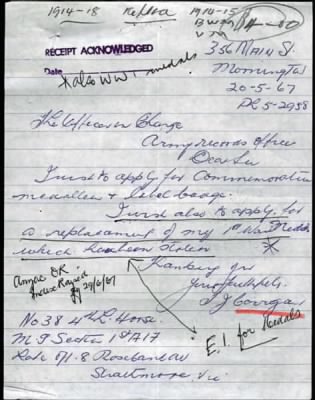 1914-18 Replica 1914-15
BWM
VM
RECEIPT ACKNOWLEDGED
Date
* also WW1 medals
356 Main St.
Mornington
20-5-67
PL 5-2958
The Officer in Charge
Army records Office
Dear Sir
I wish to apply for Commemorative
medallion & label badge.
I wish also to apply for
a replacement of my 1st War Medals
which have been stolen *
Thanking you
Yours faithfully
J Corrigan
Anzac OK.
29/6/67
E.I. for Medals
No 38 4th L Horse
M G Section 1st AIF
Late of 1.8 Rosebank Av
Strathmore. Vic